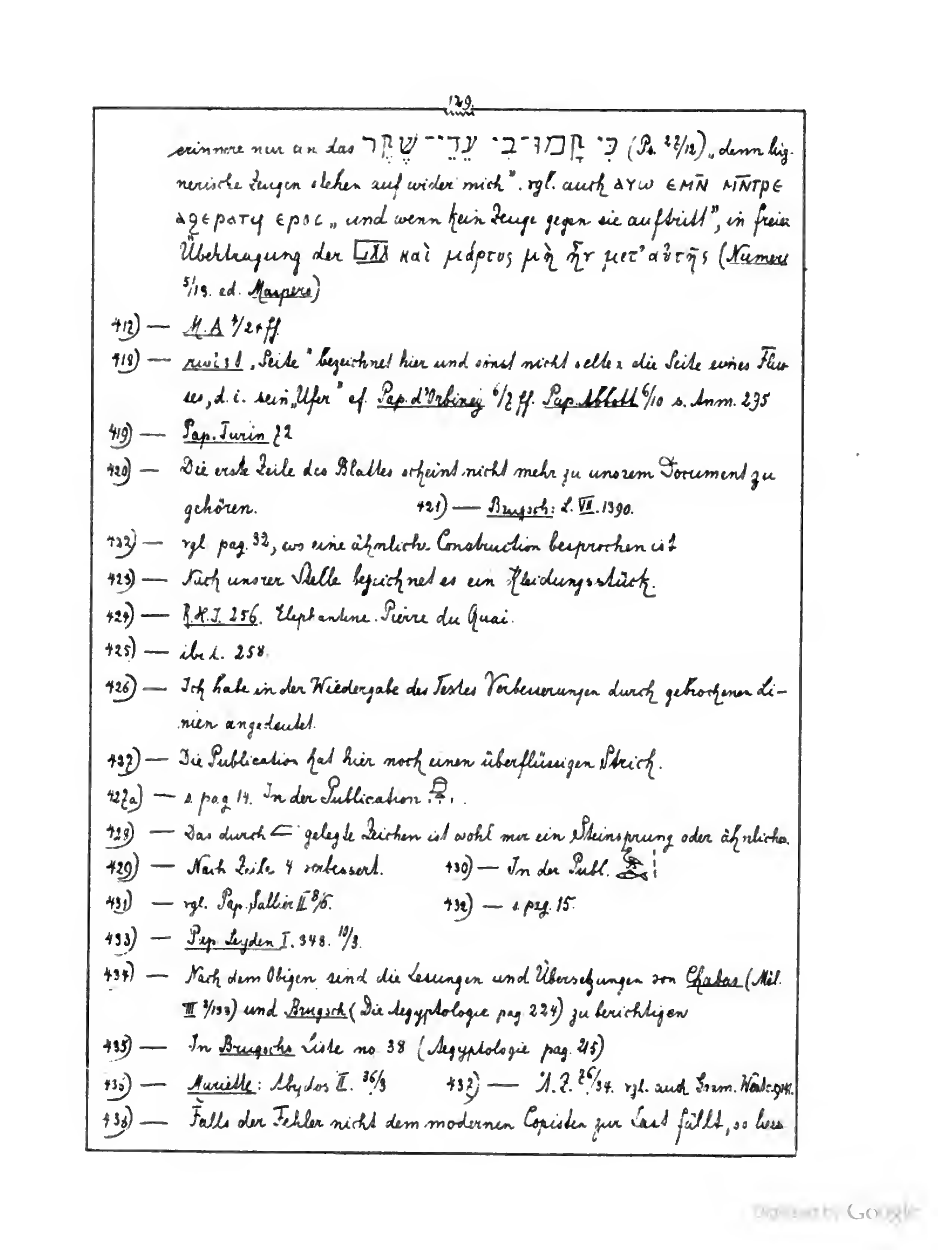 129.
erinnere nur an das כִּי קָמוּ־בִי עֵדֵי־שֶׁקֶר (Ps. 27/12) „denn lüg-
nerische Zeugen stehen auf wider mich". vgl. auch ⲁⲩⲱ ⲉⲙⲛ̄ ⲙⲛ̄ⲧⲣⲉ
ⲁϩⲉⲣⲁⲧϥ ⲉⲣⲟⲥ „und wenn kein Zeuge gegen sie auftritt", in freier
Übertragung der LXX καὶ μάρτυς μὴ ἦν μετ' αὐτῆς (Numeri
5/13. ed. Maspero)
417) — M.A 4/24 ff.
418) — „Seite" bezeichnet hier und sonst nicht selten die Seite eines Flus-
ses, d. i. sein „Ufer" cf. Pap. d'Orbiney 6/7 ff. Pap. Abbott 6/10 s. Anm. 235
419) — Pap. Turin 72
420) — Die erste Zeile des Blattes scheint nicht mehr zu unserem Document zu
gehören. 421) — Brugsch: L. VII. 1390.
422) — vgl. pag. 32, wo eine ähnliche Construction besprochen ist
423) — Nach unsrer Stelle bezeichnet es ein Kleidungsstück.
424) — R.H.I. 256. Elephantine. Pierre du Quai.
425) — ibid. 258.
426) — Ich habe in der Wiedergabe des Textes Verbesserungen durch gebrochenen Li-
nien angedeutet.
427) — Die Publication hat hier noch einen überflüssigen Strich.
427a) — s. pag 14. In der Publication
428) — Das durch gelegte Zeichen ist wohl nur ein Steinsprung oder ähnliches.
429) — Nach Zeile 4 verbessert. 430) — In der Publ.
431) — vgl. Pap. Sallier II 8/5. 432) — s. pag. 15.
433) — Pap. Leyden I. 348. 10/3.
434) — Nach dem Obigen sind die Lesungen und Übersetzungen von Chabas (Mél.
III 2/133) und Brugsch (Die Aegyptologie pag 224) zu berichtigen
435) — In Brugschs Liste no. 38 (Aegyptologie pag. 215)
436) — Mariette: Abydos II. 36/3 437) — Ä. Z. 76/34. vgl. auch Gram.
438) — Falls der Fehler nicht dem modernen Copisten zur Last fällt, so lies
Digitized by Google